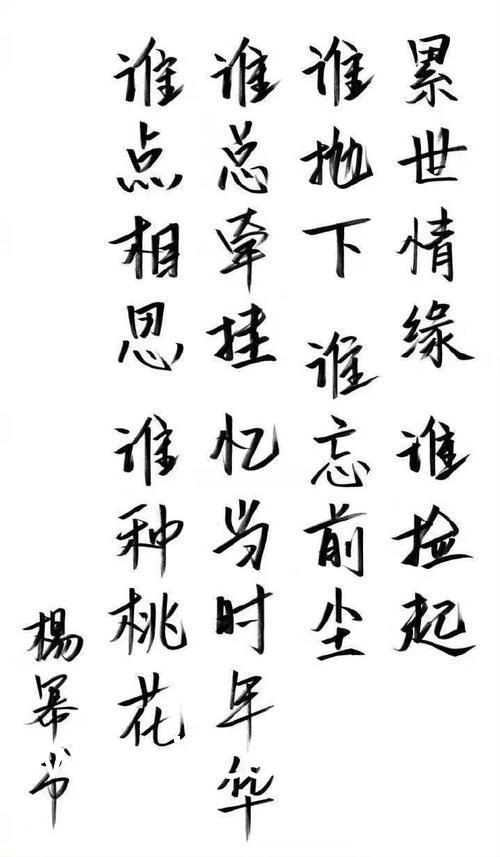 累世情缘 谁捡起
谁抛下 谁忘前尘
谁总牵挂 忆当时年华
谁点相思 谁种桃花
楊幂